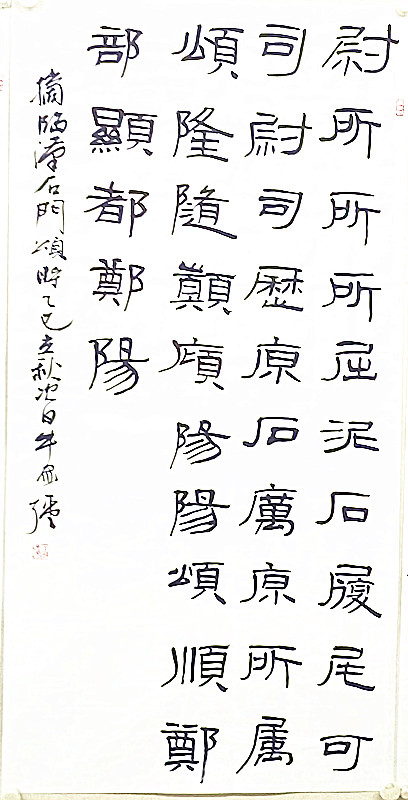 尉所所所屈泥石履尾可
司尉司歷原石厲原所属
頌隆隨顛願陽陽頌順鄭
部顯都鄭陽
摘臨漢石門頌時乙巳立秋次日牛